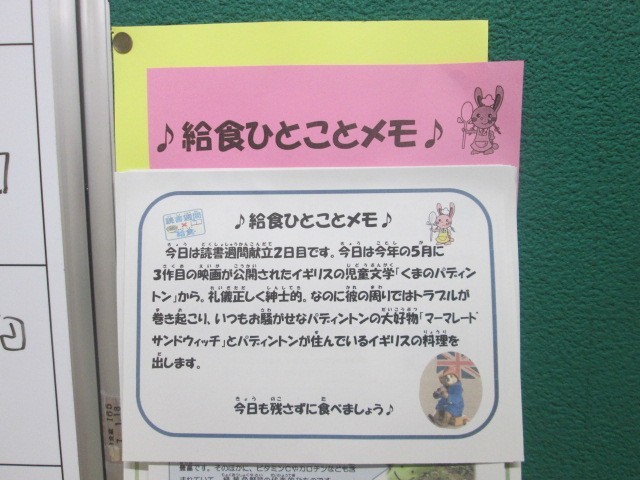 ♪給食ひとことメモ♪
読書週間
給食
♪給食ひとことメモ♪
今日は読書週間献立2日目です。今日は今年の5月に
3作目の映画が公開されたイギリスの児童文学「くまのパディン
トン」から。礼儀正しく紳士的。なのに彼の周りではトラブルが
巻き起こり、いつもお騒がせなパディントンの大好物「マーマレード
サンドウィッチ」とパディントンが住んでいるイギリスの料理を
出します。
今日も残さずに食べましょう♪